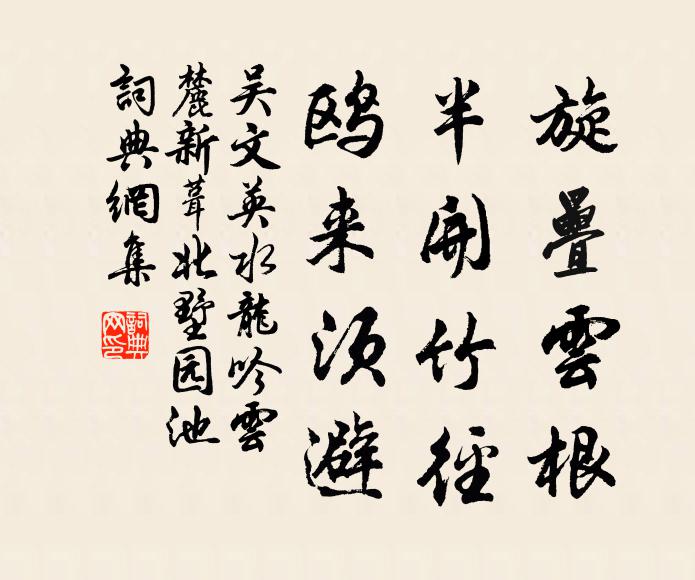 旋疊雲根
半開竹徑
鸥来須避
吴文英水龍吟雲
麓新葺北墅园池
詞典網集
詞典
网印